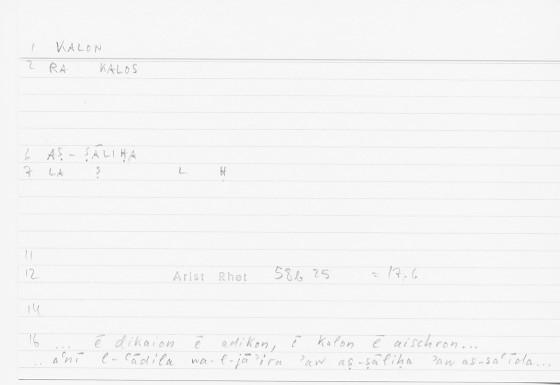 1 KALON
2 RA KALOS
6 AṢ - ṢĀLIḤA
7 LA Ṣ L Ḥ
11
12 Arist Rhet 58b 25 = 17,6
14
16 ... ē dikaion ē adikon, ē kalon ē aischron...
.. aʿnī l-ʿādila wa-l-jāʾira ʾaw aṣ-ṣāliḥa ʾaw as-saʾīda...